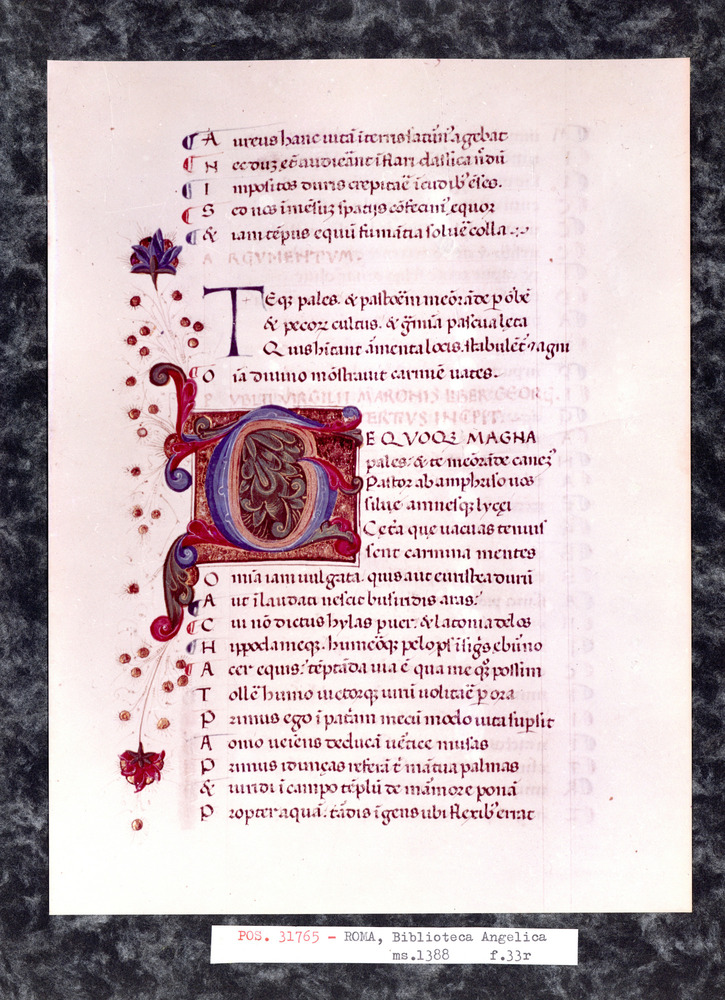 A ureus hanc uitā ī terris saturn᾽ agebat
N ec duȝ et̄ audierāt īflari classica n̄dū
I mpositos duris crepitaē īcudib᾽ ēses.
S ed nos īmēsuȝ spatijs cōfecim᾽ equor
& iam tēpus equū fumātia soluē colla.
ARGVMENTVM.
TEqȝ pales. & pastor meōrāde p orbē
& pecorȝ cultus. & grāia pascua leta
Quis hitant armenta locis. stabulēt ⁊ agni
O ia diuino mōstrauit carmiē uates.
PVBLII VIRGILII MARONIS LIBER GEORG.
TERTIVS INCIPIT.
TE QVOQȝ MAGNA
pales. & te meōrāde caneȝ
Pastor ab amphriso uos
silue amnesqȝ lycei
Cet̄a que uacuas tenuis
sent carmina mentes
O mīa iam uulgata. quis aut euristea durū
A ut īlaudati nescit busiridis aras?
C ui nō dictus hylas puer. & latonia delos
H ippodameqȝ. humeōqȝ pelops īsigis eburno
A cer equis? tēptāda uia ē qua me qȝ possim
T ollē humo uictorqȝ uirū uolitaē p ora
P rimus ego ī patām mecū modo uita supsit
A onio ueiēns deducā uētice musas
P rimus idumeas referā t᾽ mātua palmas
& uiridi ī campo tēplū de mamore ponā
P ropter aquā. tādis īgens ubi flexib᾽ errat
POS. 31765 - ROMA, Biblioteca Angelica
ms.1388 f.33r